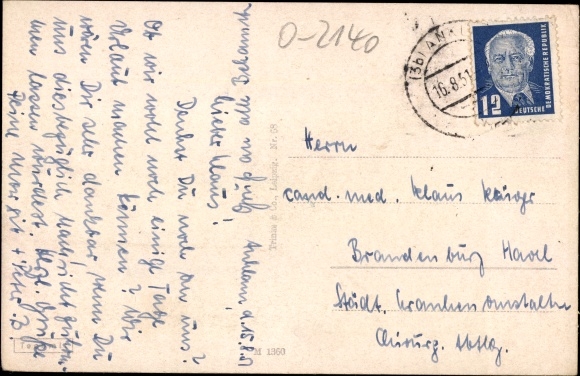 O-2140
(3b) ANKLAM
16.8.51
12
DEUTSCHE
DEMOKRATISCHE REPUBLIK
Gruß an alle Bekannte
Anklam d. 15.8.51
Lieber Klaus!
Denkst Du noch an uns?
Ob wir wohl noch einige Tage
Urlaub machen können? Wir
wären Dir sehr dankbar wenn Du
uns diesbezüglich Nachricht zukom-
men lassen würdest. Herzl. Grüße
Deine Margit + Peter
Herrn
cand. med. Klaus Krüger
Brandenburg Havel
Städt. Krankenanstalten
Chirurg. Abtlg.
Trinks & Co., Leipzig. Nr. 08
M 1360